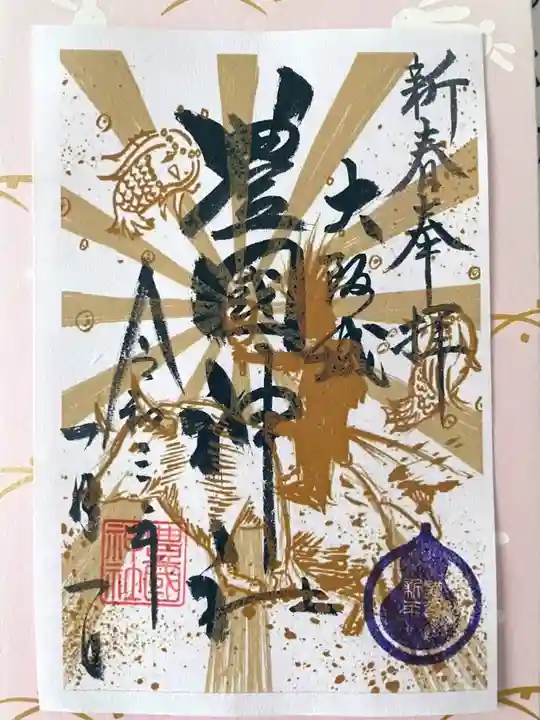 新春奉拝
大阪城
豊國神社
令和三年
一月一日
豊國
神社
新年